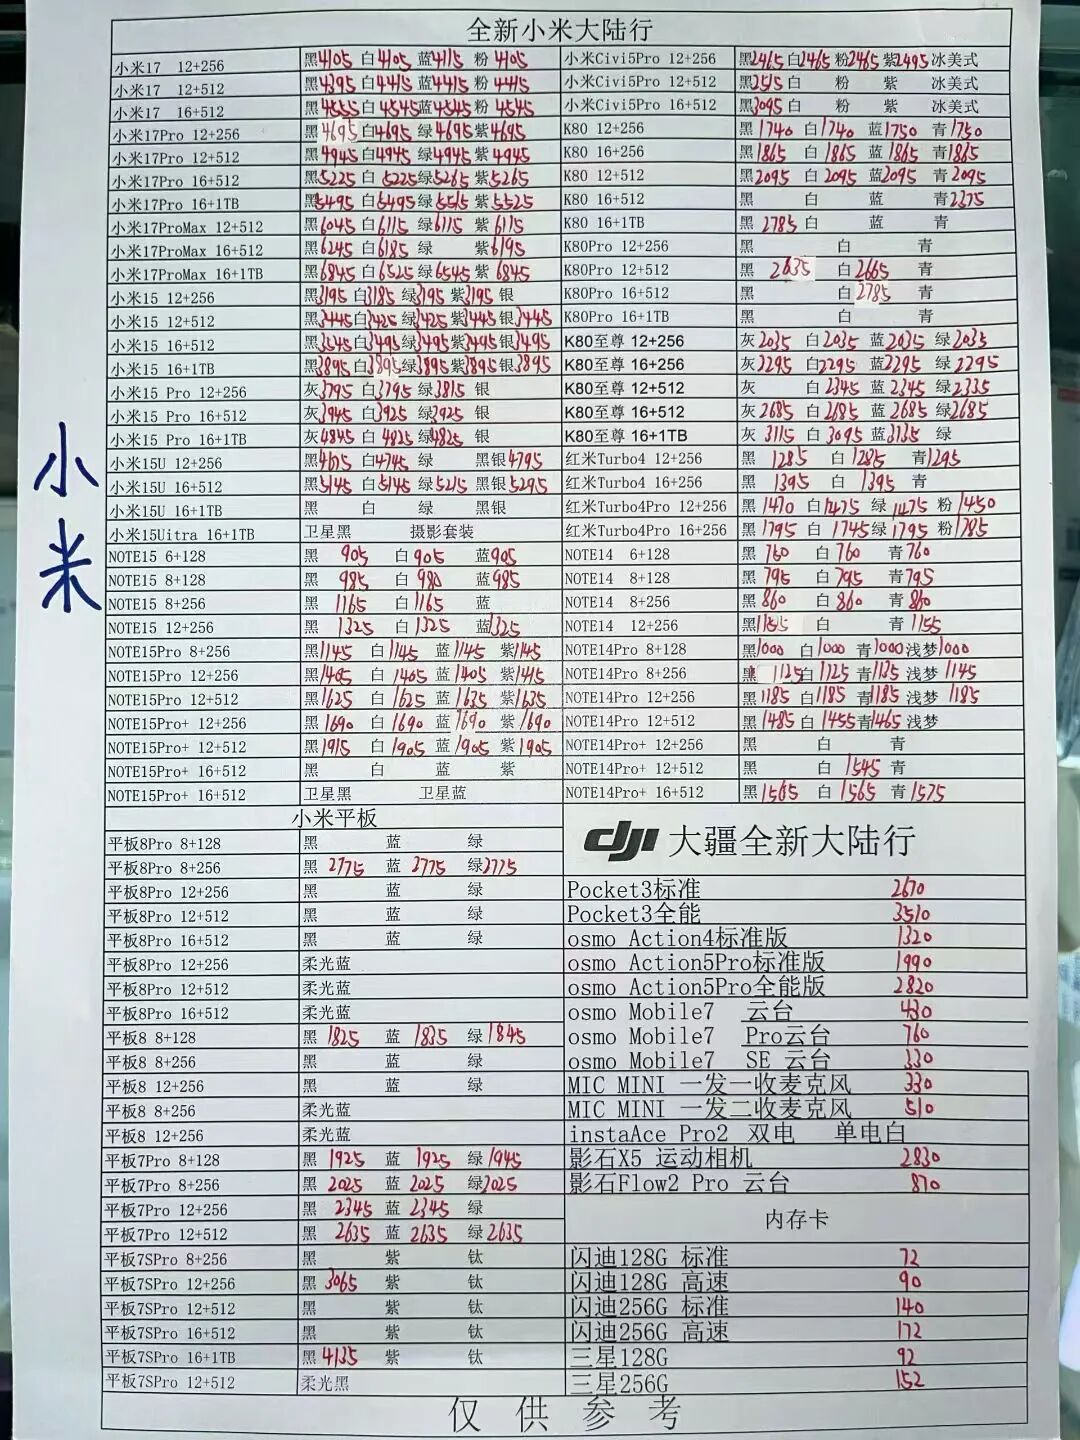 全新小米大陆行
小米17 12+256 黑4105 白4105 蓝4115 粉4105
小米17 12+512 黑4395 白4415 蓝4415 粉4415
小米17 16+512 黑4555 白4545 蓝4545 粉4545
小米17Pro 12+256 黑4695 白4695 绿4695 紫4695
小米17Pro 12+512 黑4945 白4945 绿4945 紫4945
小米17Pro 16+512 黑5225 白5225 绿5265 紫5265
小米17Pro 16+1TB 黑5495 白5495 绿5515 紫5525
小米17ProMax 12+512 黑6045 白6115 绿6115 紫6115
小米17ProMax 16+512 黑6245 白6185 绿 紫6195
小米17ProMax 16+1TB 黑6845 白6525 绿6545 紫6845
小米15 12+256 黑3195 白3185 绿3195 紫3195 银
小米15 12+512 黑3445 白3425 绿3425 紫3445 银3445
小米15 16+512 黑3545 白3495 绿3495 紫3495 银3495
小米15 16+1TB 黑3895 白3895 绿3895 紫3895 银3895
小米15 Pro 12+256 灰3795 白3795 绿3815 银
小米15 Pro 16+512 灰3945 白3925 绿3925 银
小米15 Pro 16+1TB 灰4845 白4825 绿4825 银
小米15U 12+256 黑4675 白4745 绿 黑银4795
小米15U 16+512 黑5145 白5145 绿5215 黑银5295
小米15U 16+1TB 黑 白 绿 黑银
小米15Uitra 16+1TB 卫星黑 摄影套装
NOTE15 6+128 黑 905 白905 蓝905
NOTE15 8+128 黑 985 白 980 蓝985
NOTE15 8+256 黑 1165 白1165 蓝
NOTE15 12+256 黑 1325 白1325 蓝1325
NOTE15Pro 8+256 黑1145 白1145 蓝1145 紫1145
NOTE15Pro 12+256 黑1405 白1405 蓝1405 紫1415
NOTE15Pro 12+512 黑1625 白1625 蓝1635 紫1635
NOTE15Pro+ 12+256 黑1690 白1690 蓝1690 紫1690
NOTE15Pro+ 12+512 黑1915 白1905 蓝1905 紫1905
NOTE15Pro+ 16+512 黑 白 蓝 紫
NOTE15Pro+ 16+512 卫星黑 卫星蓝
小米Civi5Pro 12+256 黑2465 白2465 粉2465 紫2495 冰美式
小米Civi5Pro 12+512 黑3515 白 粉 紫 冰美式
小米Civi5Pro 16+512 黑3095 白 粉 紫 冰美式
K80 12+256 黑1740 白1740 蓝1750 青1750
K80 16+256 黑1865 白1865 蓝1865 青1865
K80 12+512 黑2095 白2095 蓝2095 青2095
K80 16+512 黑 白 蓝 青2375
K80 16+1TB 黑2785 白 蓝 青
K80Pro 12+256 黑 白 青
K80Pro 12+512 黑 2635 白2665 青
K80Pro 16+512 黑 白2785 青
K80Pro 16+1TB 黑 白 青
K80至尊 12+256 灰2035 白2035 蓝2035 绿2035
K80至尊 16+256 灰2295 白2295 蓝2295 绿2295
K80至尊 12+512 灰 白2345 蓝2345 绿2335
K80至尊 16+512 灰2685 白2685 蓝2685 绿2685
K80至尊 16+1TB 灰 3115 白3095 蓝3135 绿
红米Turbo4 12+256 黑 1285 白1285 青1295
红米Turbo4 16+256 黑 1395 白 1395 青
红米Turbo4Pro 12+256 黑1470 白1475 绿1475 粉1450
红米Turbo4Pro 16+256 黑1795 白1745 绿1795 粉1785
NOTE14 6+128 黑 760 白760 青760
NOTE14 8+128 黑 795 白795 青795
NOTE14 8+256 黑 860 白860 青860
NOTE14 12+256 黑1155 白 青 1155
NOTE14Pro 8+128 黑1000 白1000 青1000 浅梦1000
NOTE14Pro 8+256 黑 1125 白1125 青1135 浅梦 1145
NOTE14Pro 12+256 黑1185 白1185 青1185 浅梦 1185
NOTE14Pro 12+512 黑1485 白1455 青1465 浅梦
NOTE14Pro+ 12+256 黑 白 青
NOTE14Pro+ 12+512 黑 白 1545 青
NOTE14Pro+ 16+512 黑1565 白 1565 青1575
小米
小米平板
平板8Pro 8+128 黑 蓝 绿
平板8Pro 8+256 黑 2775 蓝 2775 绿2775
平板8Pro 12+256 黑 蓝 绿
平板8Pro 12+512 黑 蓝 绿
平板8Pro 16+512 黑 蓝 绿
平板8Pro 12+256 柔光蓝
平板8Pro 12+512 柔光蓝
平板8Pro 16+512 柔光蓝
平板8 8+128 黑 1825 蓝 1835 绿1845
平板8 8+256 黑 蓝 绿
平板8 12+256 黑 蓝 绿
平板8 8+256 柔光蓝
平板8 12+256 柔光蓝
平板7Pro 8+128 黑 1925 蓝 1925 绿1945
平板7Pro 8+256 黑 2025 蓝 2025 绿2025
平板7Pro 12+256 黑 2345 蓝 2345 绿
平板7Pro 12+512 黑 2635 蓝 2635 绿2635
平板7SPro 8+256 黑 紫 钛
平板7SPro 12+256 黑 3065 紫 钛
平板7SPro 12+512 黑 紫 钛
平板7SPro 16+512 黑 紫 钛
平板7SPro 16+1TB 黑 4135 紫 钛
平板7SPro 12+512 柔光黑
dji 大疆全新大陆行
Pocket3标准 2670
Pocket3全能 3510
osmo Action4标准版 1320
osmo Action5Pro标准版 1990
osmo Action5Pro全能版 2820
osmo Mobile7 云台 430
osmo Mobile7 Pro云台 760
osmo Mobile7 SE 云台 330
MIC MINI 一发一收麦克风 330
MIC MINI 一发二收麦克风 510
instaAce Pro2 双电 单电白
影石X5 运动相机 2830
影石Flow2 Pro 云台 870
内存卡
闪迪128G 标准 72
闪迪128G 高速 90
闪迪256G 标准 140
闪迪256G 高速 172
三星128G 92
三星256G 152
仅供参考